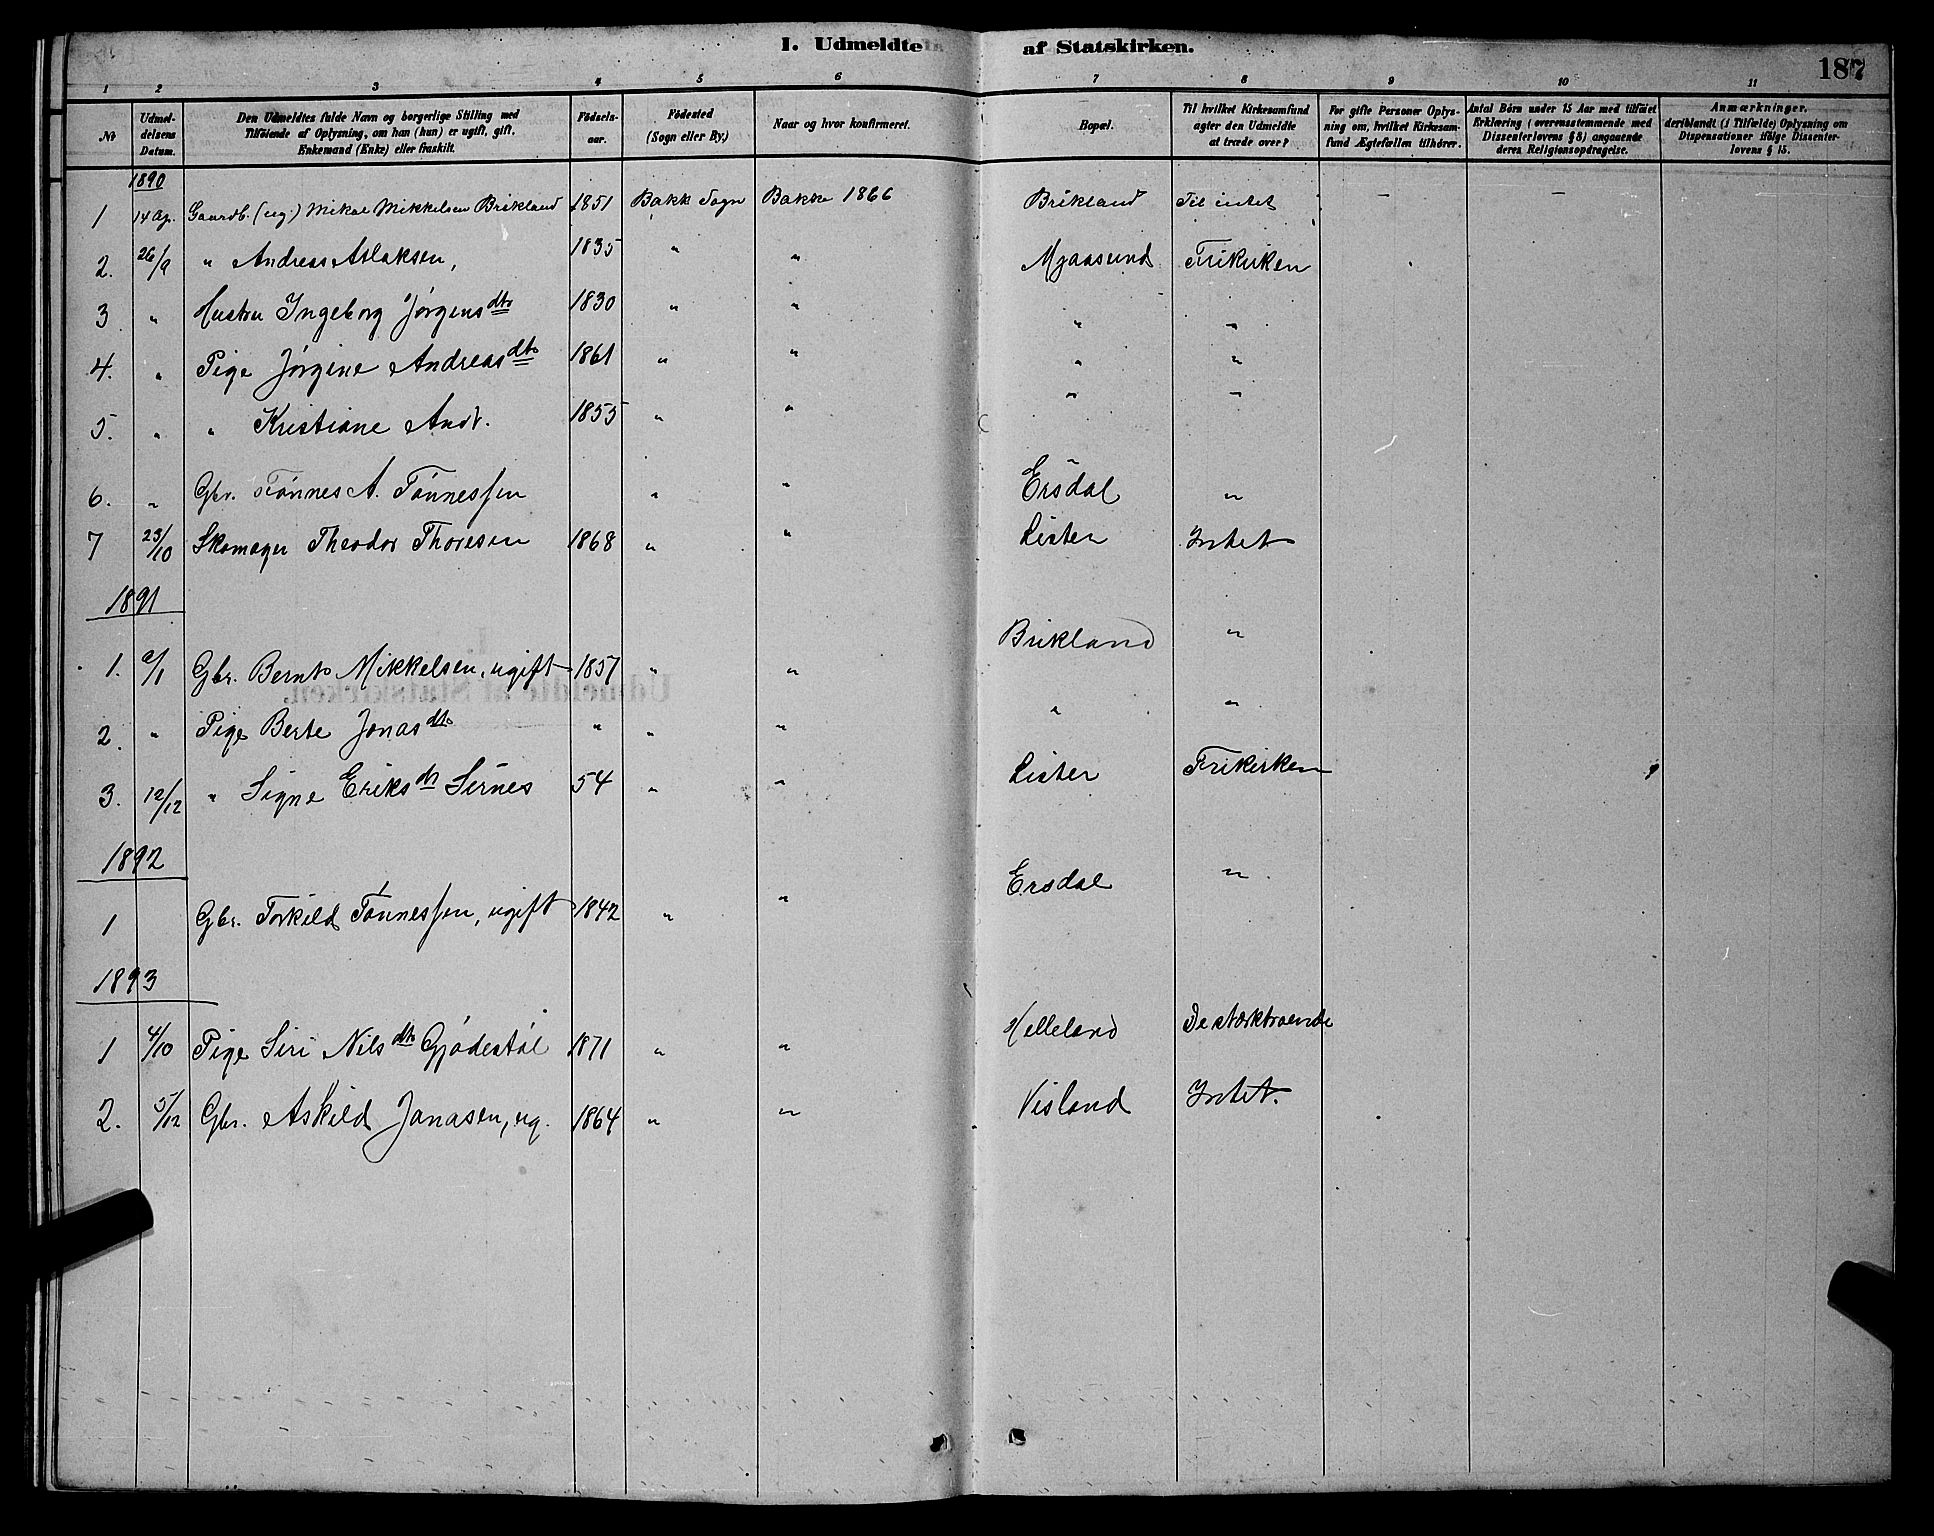 I. Udmeldte af Statskirken.
187
1 2 3 4 5 6 7 8 9 10 11
No
Udmeldelsens Datum.
Den Udmeldtes fulde Navn og borgerlige Stilling med Tilföiende af Oplysning, om han (hun) er ugift, gift, Enkemand (Enke) eller fraskilt.
Födselsaar.
Födested (Sogn eller By.)
Naar og hvor konfirmeret.
Bopæl.
Til hvilket Kirkesamfund agter den Udmeldte at træde over?
For gifte Personer Oplysning om, hvilket Kirkesamfund Ægtefællen tilhörer.
Antal Börn under 15 Aar med tilföiet Erklæring (overensstemmende med Dissenterlovens § 8) angaaende deres Religionsopdragelse.
Anmærkninger. deriblandt (i Tilfælde) Oplysning om Dispensationer ifölge Dissenterlovens § 15.
1890
1 14 Ap. Gaardb. (ug.) Mikal Mikkelsen Brikland 1851 Bakk Sogn Bakke 1866 Brikland Til intet - -
2. 26/9 " Andreas Aslaksen, 1835 " " Mgaasund Frikirken
3 " Hustru Ingeborg Jørgensdtr 1830 " " " "
4. " Pige Jørgine Andreasdtr 1861 " " " "
5. " " Kristiane Andr. 1855 " " " "
6. " Gbr. Tønnes A. Tønnessen " " Ersdal "
7 23/10 Skomager Theodor Thoresen 1868 " " Lister Intet
1891
1. 2/1 Gbr. Bernt Mikkelsen, ugift 1857 " " Brikland "
2. " Pige Berte Jonasdtr " " " " "
3. 12/12 " Signe Eriksdtr Sirnes 54 " " Lister Frikirken
1892
1 Gbr. Torkild Tønnessen, ugift 1842 " " Ersdal "
1893
1 4/10 Pige Siri Nilsdtr Gjødestøl 1871 " " Helleland De stærktroende
2. 5/12 Gbr. Askild Jonasen, ug. 1864 " " Visland Intet.